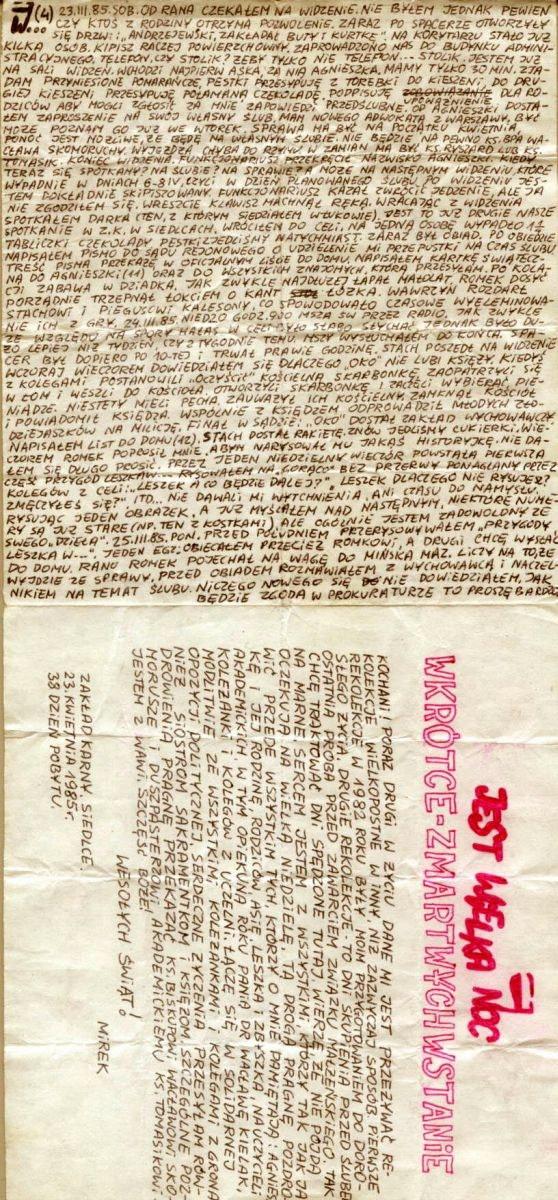 (4) 23.III.85. SOB. OD RANA CZEKAŁEM NA WIDZENIE. NIE BYŁEM JEDNAK PEWIEN
W... CZY KTOŚ Z RODZINY OTRZYMA POZWOLENIE. ZARAZ PO SPACERZE OTWORZYŁY
SIĘ DRZWI: „ANDRZEJEWSKI, ZAKŁADAĆ BUTY I KURTKĘ". NA KORYTARZU STAŁO JUŻ
KILKA OSÓB. KIPISZ RACZEJ POWIERZCHOWNY. ZAPROWADZONO NAS DO BUDYNKU ADMINI-
STRACYJNEGO. TELEFON, CZY STOLIK? ŻEBY TYLKO NIE TELEFON... STOLIK. JESTEM JUŻ
NA SALI WIDZEŃ. WCHODZI NAJPIERW AŚKA, ZA NIĄ AGNIESZKA. MAMY TYLKO 30 MIN. ZJA-
DAM PRZYWIEZIONE POMARAŃCZE. PESTKI PRZESYPUJĘ Z TOREBKI DO KIESZENI. DO DRU-
GIEJ KIESZENI PRZESYPUJĘ POŁAMANĄ CZEKOLADĘ. PODPISUJĘ UPOWAŻNIENIE DLA RO-
DZICÓW ABY MOGLI ZGŁOSIĆ ZA MNIE ZAPOWIEDZI PRZEDŚLUBNE. OD AGNIESZKI DOSTA-
ŁEM ZAPROSZENIE NA SWÓJ WŁASNY ŚLUB. MAM NOWEGO ADWOKATA Z WARSZAWY. BYĆ
MOŻE POZNAM GO JUŻ WE WTOREK. SPRAWA MA BYĆ NA POCZĄTKU KWIETNIA.
PONOĆ JEST MOŻLIWE, ŻE BĘDĘ NA WŁASNYM ŚLUBIE. NIE BĘDZIE NA PEWNO KS. BPA WA-
CŁAWA SKOMORUCHY. WYJEŻDŻA CHYBA DO RZYMU. W ZAMIAN MA BYĆ KS. RYSZARD LUB KS.
TOMASIK. KONIEC WIDZENIA. FUNKCJONARIUSZ PRZEKRĘCIŁ NAZWISKO AGNIESZKI. KIEDY
TERAZ SIĘ SPOTKAMY? NA ŚLUBIE? NA SPRAWIE? A MOŻE NA NASTĘPNYM WIDZENIU, KTÓRE
WYPADNIE W DNIACH 6-8 IV, CZYLI W DZIEŃ PLANOWANEGO ŚLUBU. PO WIDZENIU JES-
TEM DOKŁADNIE SKIPISZOWANY. FUNKCJONARIUSZ KAZAŁ ZWRÓCIĆ JEDZENIE, ALE JA
NIE ZGODZIŁEM SIĘ. WRESZCIE KLAWISZ MACHNĄŁ RĘKĄ. WRACAJĄC Z WIDZENIA
SPOTKAŁEM DARKA (TEN, Z KTÓRYM SIEDZIAŁEM W ŁUKOWIE). JEST TO JUŻ DRUGIE NASZE
SPOTKANIE W Z.K. W SIEDLCACH. WRÓCIŁEM DO CELI. NA JEDNĄ OSOBĘ WYPADŁO 1½
TABLICZKI CZEKOLADY. PESTKI ZJEDLIŚMY NATYCHMIAST. ZARAZ BYŁ OBIAD. PO OBIEDZIE
NAPISAŁEM PISMO DO SĄDU REJONOWEGO O UDZIELENIE MI PRZEPUSTKI NA CZAS ŚLUBU.
TREŚĆ PISMA PRZEKAŻĘ W OFICJALNYM LIŚCIE DO DOMU. NAPISAŁEM KARTKĘ ŚWIĄTECZ-
NĄ DO AGNIESZKI (11) ORAZ DO WSZYSTKICH ZNAJOMYCH, KTÓRĄ PRZESYŁAM. PO KOLA-
CJI ZABAWA W DZIADKA. JAK ZWYKLE NAJDŁUŻEJ ŁAPAŁ MAŁOLAT. ROMEK DOSYĆ
PORZĄDNIE TRZEPNĄŁ ŁOKCIEM O KANT ŁÓŻKA. WAWRZYN ROZDARŁ
STACHOWI I PIEGUSOWI KALESONY, CO SPOWODOWAŁO CZASOWE WYELEMINOWA-
NIE ICH Z GRY. 24.III.85. NIEDZ. O GODZ. 9.00 MSZA ŚW. PRZEZ RADIO. JAK ZWYKLE
ZE WZGLĘDU NA DUŻY HAŁAS W CELI BYŁO SŁABO SŁYCHAĆ. JEDNAK BYŁO DU-
ŻO LEPIEJ NIŻ TYDZIEŃ, CZY 2 TYGODNIE TEMU. MSZY WYSŁUCHAŁEM DO KOŃCA. SPA-
CER BYŁ DOPIERO PO 10-TEJ I TRWAŁ PRAWIE GODZINĘ. STACH POSZEDŁ NA WIDZENIE.
WCZORAJ WIECZOREM DOWIEDZIAŁEM SIĘ DLACZEGO „OKO" NIE LUBI KSIĘŻY. KIEDYŚ
Z KOLEGAMI POSTANOWILI „OCZYŚCIĆ" KOŚCIELNĄ SKARBONKĘ. ZAOPATRZYLI SIĘ
W ŁOM I WESZLI DO KOŚCIOŁA. OTWORZYLI SKARBONKĘ I ZACZĘLI WYBIERAĆ PIE-
NIĄDZE. NIESTETY MIELI PECHA. ZAUWAŻYŁ ICH KOŚCIELNY, ZAMKNĄŁ KOŚCIÓŁ
I POWIADOMIŁ KSIĘDZA. WSPÓLNIE Z KSIĘDZEM ODPROWADZIŁ MŁODYCH ZŁO-
DZIEJASZKÓW NA MILICJĘ. FINAŁ W SĄDZIE. „OKO" DOSTAŁ ZAKŁAD WYCHOWAWCZY.
NAPISAŁEM LIST DO DOMU (12). STACH DOSTAŁ RAKIETĘ. ZNÓW JEDZĄMY CUKIERKI. WIE-
CZOREM ROMEK POPROSIŁ MNIE, ABYM NARYSOWAŁ MU JAKĄŚ HISTORYJKĘ. NIE DA-
ŁEM SIĘ DŁUGO PROSIĆ. PRZEZ JEDEN NIEDZIELNY WIECZÓR POWSTAŁA PIERWSZA
CZĘŚĆ PRZYGÓD LESZKA W... RYSOWAŁEM NA „GORĄCO" BEZ PRZERWY PONAGLANY PRZEZ
KOLEGÓW Z CELI: „LESZEK A CO BĘDZIE DALEJ?", „LESZEK DLACZEGO NIE RYSUJESZ?
ZMĘCZYŁEŚ SIĘ?" ITD... NIE DAWALI MI WYTCHNIENIA, ANI CZASU DO NAMYSŁU.
RYSUJĄC JEDEN OBRAZEK, A JUŻ MYŚLAŁEM NAD NASTĘPNYM. NIEKTÓRE NUME-
RY SĄ JUŻ STARE (NP. TEN Z KOSTKAMI). ALE OGÓLNIE JESTEM ZADOWOLONY ZE
SWEGO „DZIEŁA". 25.III.85. PON. PRZED POŁUDNIEM PRZERYSOWYWAŁEM „PRZYGODY
LESZKA W...". JEDEN EGZ. OBIECAŁEM PRZECIEŻ ROMKOWI, A DRUGI CHCĘ WYSŁAĆ
DO DOMU. RANO ROMEK POJECHAŁ NA WAGĘ DO MIŃSKA MAZ. LICZY NA TO, ŻE
WYJDZIE ZE SPRAWY. PRZED OBIADEM ROZMAWIAŁEM Z WYCHOWAWCĄ I NACZEL-
NIKIEM NA TEMAT ŚLUBU. NICZEGO NOWEGO SIĘ NIE DOWIEDZIAŁEM, JAK
BĘDZIE ZGODA W PROKURATURZE TO PROSZĘ BARDZO.
JEST WIELKA NOC
WKRÓTCE - ZMARTWYCHWSTANIE
KOCHANI! PO RAZ DRUGI W ŻYCIU DANE MI JEST PRZEŻYWAĆ RE-
KOLEKCJE WIELKOPOSTNE W INNY NIŻ ZAZWYCZAJ SPOSÓB. PIERWSZE
REKOLEKCJE W 1982 ROKU BYŁY MOIM PRZYGOTOWANIEM DO DORO-
SŁEGO ŻYCIA. DRUGIE REKOLEKCJE, TO DNI SKUPIENIA PRZED ŚLUBEM,
OSTATNIA PRÓBA PRZED ZAWARCIEM ZWIĄZKU MAŁŻEŃSKIEGO. TAK
CHCĘ TRAKTOWAĆ DNI SPĘDZONE TUTAJ. WIERZĘ, ŻE NIE PÓJDĄ
NA MARNE. SERCEM JESTEM Z WSZYSTKIMI, KTÓRZY TAK JAK JA
OCZEKUJĄ NA WIELKĄ NIEDZIELĘ. TĄ DROGĄ PRAGNĘ POZDRO-
WIĆ PRZEDE WSZYSTKIM TYCH, KTÓRZY O MNIE PAMIĘTAJĄ: AGNIESZ-
KĘ I JEJ RODZINĘ, RODZICÓW, ASIĘ, LESZKA I ZBYSZKA, NAUCZYCIELI
AKADEMICKICH, W TYM OPIEKUNA ROKU PANIĄ DR WACŁAWĘ KIELAK,
KOLEŻANKI I KOLEGÓW Z UCZELNI. ŁĄCZĘ SIĘ W SOLIDARNEJ
MODLITWIE ZE WSZYSTKIMI KOLEŻANKAMI I KOLEGAMI Z GRONA
OPOZYCJI POLITYCZNEJ. SERDECZNE ŻYCZENIA PRZESYŁAM RÓW-
NIEŻ SIOSTROM SAKRAMENTKOM I KSIĘŻOM. SZCZEGÓLNE POZ-
DROWIENIA PRAGNĘ PRZEKAZAĆ KS. BISKUPOWI WACŁAWOWI SKO-
MORUSZE I DUSZPASTERZOWI AKADEMICKIEMU KS. TOMASIKOWI.
JESTEM Z WAMI. SZCZĘŚĆ BOŻE!
WESOŁYCH ŚWIĄT!
MIREK
ZAKŁAD KARNY SIEDLCE.
23. KWIETNIA 1985r.
38 DZIEŃ POBYTU.